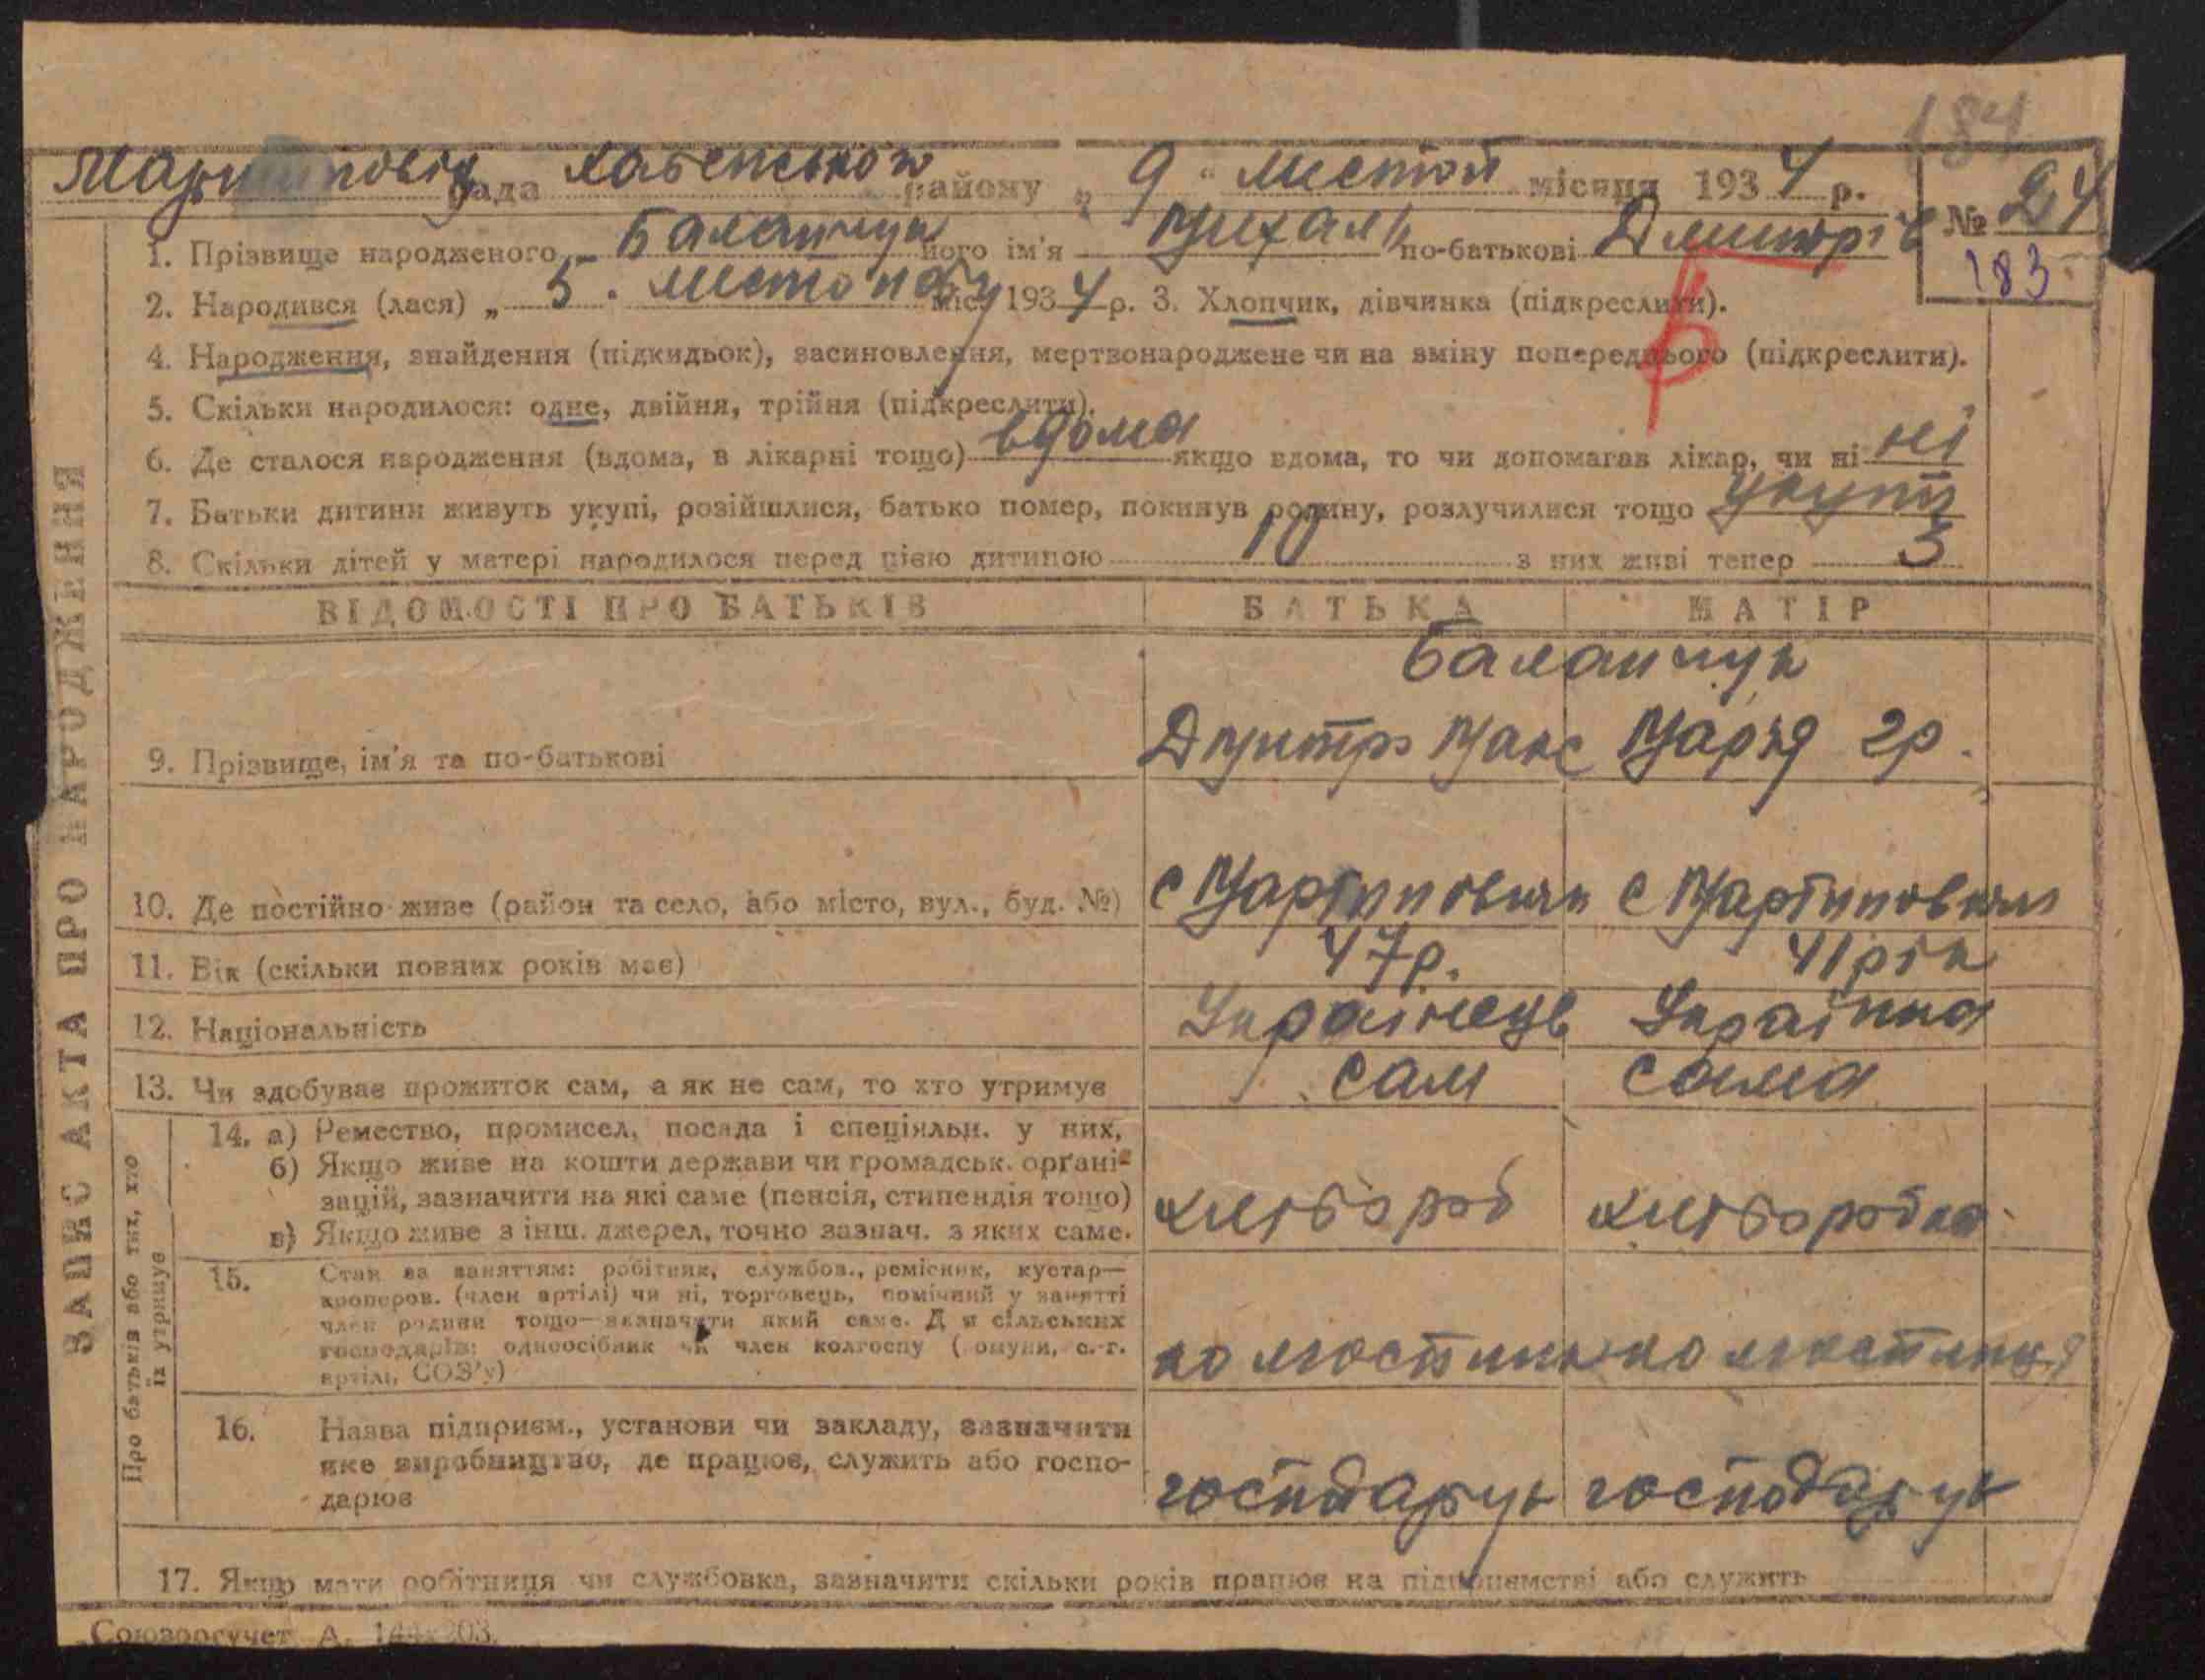 184
Мартиновіц рада Хабенського району „ 9 " листоп місяця 1934 р. № 24
1. Прізвище народженого Баланчук його ім'я Михаль по-батькові Дмитрів
183
2. Народився (лася) „ 5 . листопаду міс. 1934 р. 3. Хлопчик, дівчинка (підкреслити).
4. Народження, знайдення (підкидьок), засиновлення, мертвонароджене чи на зміну попереднього (підкреслити).
5. Скільки народилося: одне, двійня, трійня (підкреслити).
6. Де сталося народження (вдома, в лікарні тощо) вдома якщо вдома, то чи допомагав лікар, чи ні ні
7. Батьки дитини живуть укупі, розійшлися, батько помер, покинув родину, розлучилися тощо укупі
8. Скільки дітей у матері народилося перед цією дитиною 10 з них живі тепер 3
ВІДОМОСТІ ПРО БАТЬКІВ БАТЬКА МАТІР
Баланчук
9. Прізвище, ім'я та по-батькові Дмитро Макс Марія Гр.
10. Де постійно живе (район та село, або місто, вул., буд. №) с Мартиновичи с Мартиновичи
11. Вік (скільки повних років має) 47р. 41 рік
12. Національність Українець Українка
13. Чи здобуває прожиток сам, а як не сам, то хто утримує сам сама
14. а) Ремество, промисел, посада і спеціяльн. у них,
б) Якщо живе на кошти держави чи громадськ. орґані-
зацій, зазначити на які саме (пенсія, стипендія тощо) хлібороб хліборобка
в) Якщо живе з інш. джерел, точно зазнач. з яких саме.
15. Стан за заняттям: робітник, службов., ремісник, кустар—
кооперов. (член артілі) чи ні, торговець, помічний у занятті
член родини тощо—зазначити який саме. Для сільських
господарів: одноосібник чи член колгоспу (комуни, с.-г.
артілі, СОЗ'у)
16. Назва підприєм., установи чи закладу, зазначити
яке виробництво, де працює, служить або госпо-
дарює господарує господарує
17. Якщо мати робітниця чи службовка, зазначити скільки років працює на підприємстві або служить
ЗАПИС АКТА ПРО НАРОДЖЕННЯ
Про батьків або тих, хто
їх утримує
Союзоргучет А.